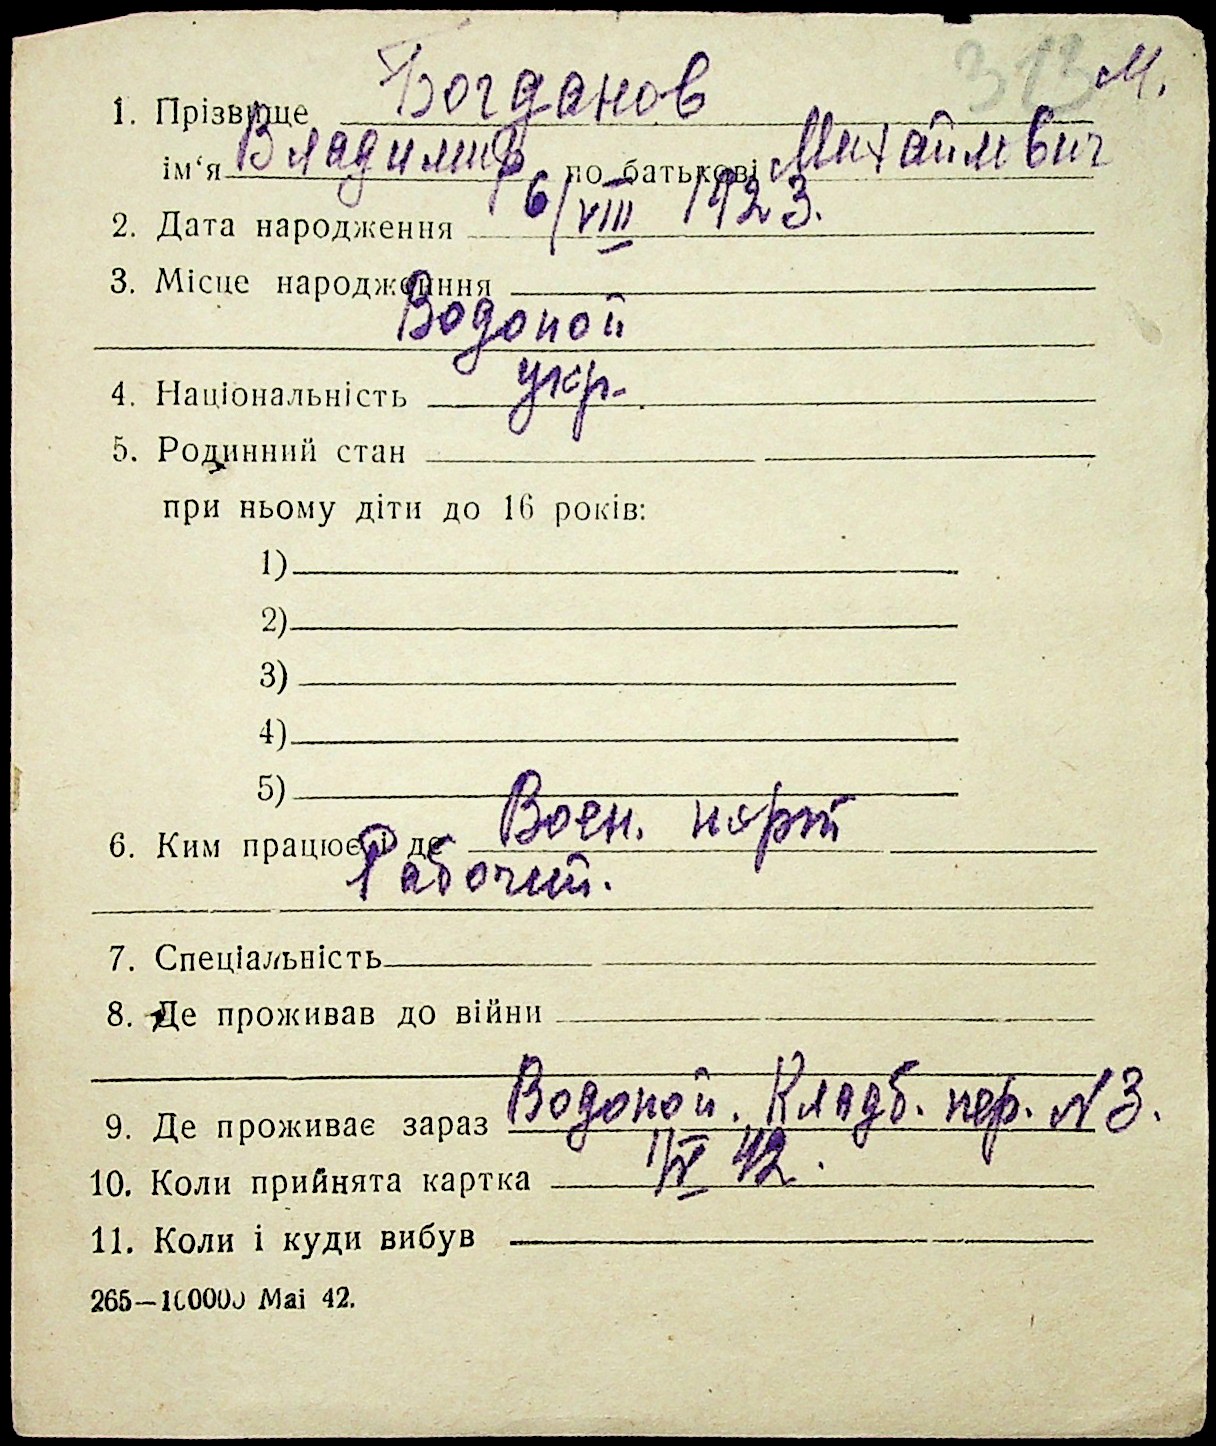 313 М.
1. Прізвище Богданов
ім‘я Владимир по батькові Михайлович
2. Дата народження 6/VIII 1923.
3. Місце народження
Водопой
4. Національність укр.
5. Родинний стан
при ньому діти до 16 років:
1)
2)
3)
4)
5)
6. Ким працює і де Воен. порт
Рабочий.
7. Спеціальність
8. Де проживав до війни
9. Де проживає зараз Водопой. Кладб. пер. N 3.
10. Коли прийнята картка 42.
11. Коли і куди вибув
265—100000 Mai 42.